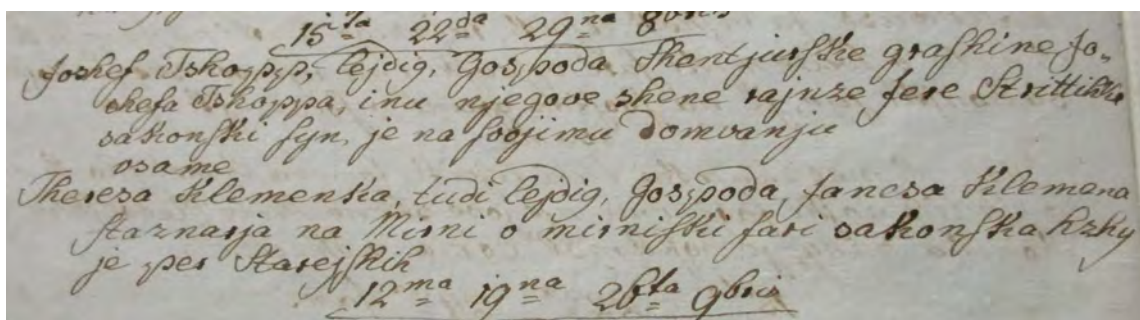 15ta 22da 29na 8bris
Joshef Tshopp, lejdig, Gospoda Shentjurske grashine Jo-
shefa Tshoppa, inu njegove shene rajnze Jere Strittihke
sakonski syn, je na svojimu domvanju
osame
Theresa Klemenka, tudi lejdig, Gospoda Jancsa Klemena
staznarja na Mirni o mirniski fari sakonska hzhy
je per Starejskih
12ma 19na 26ta 9bris